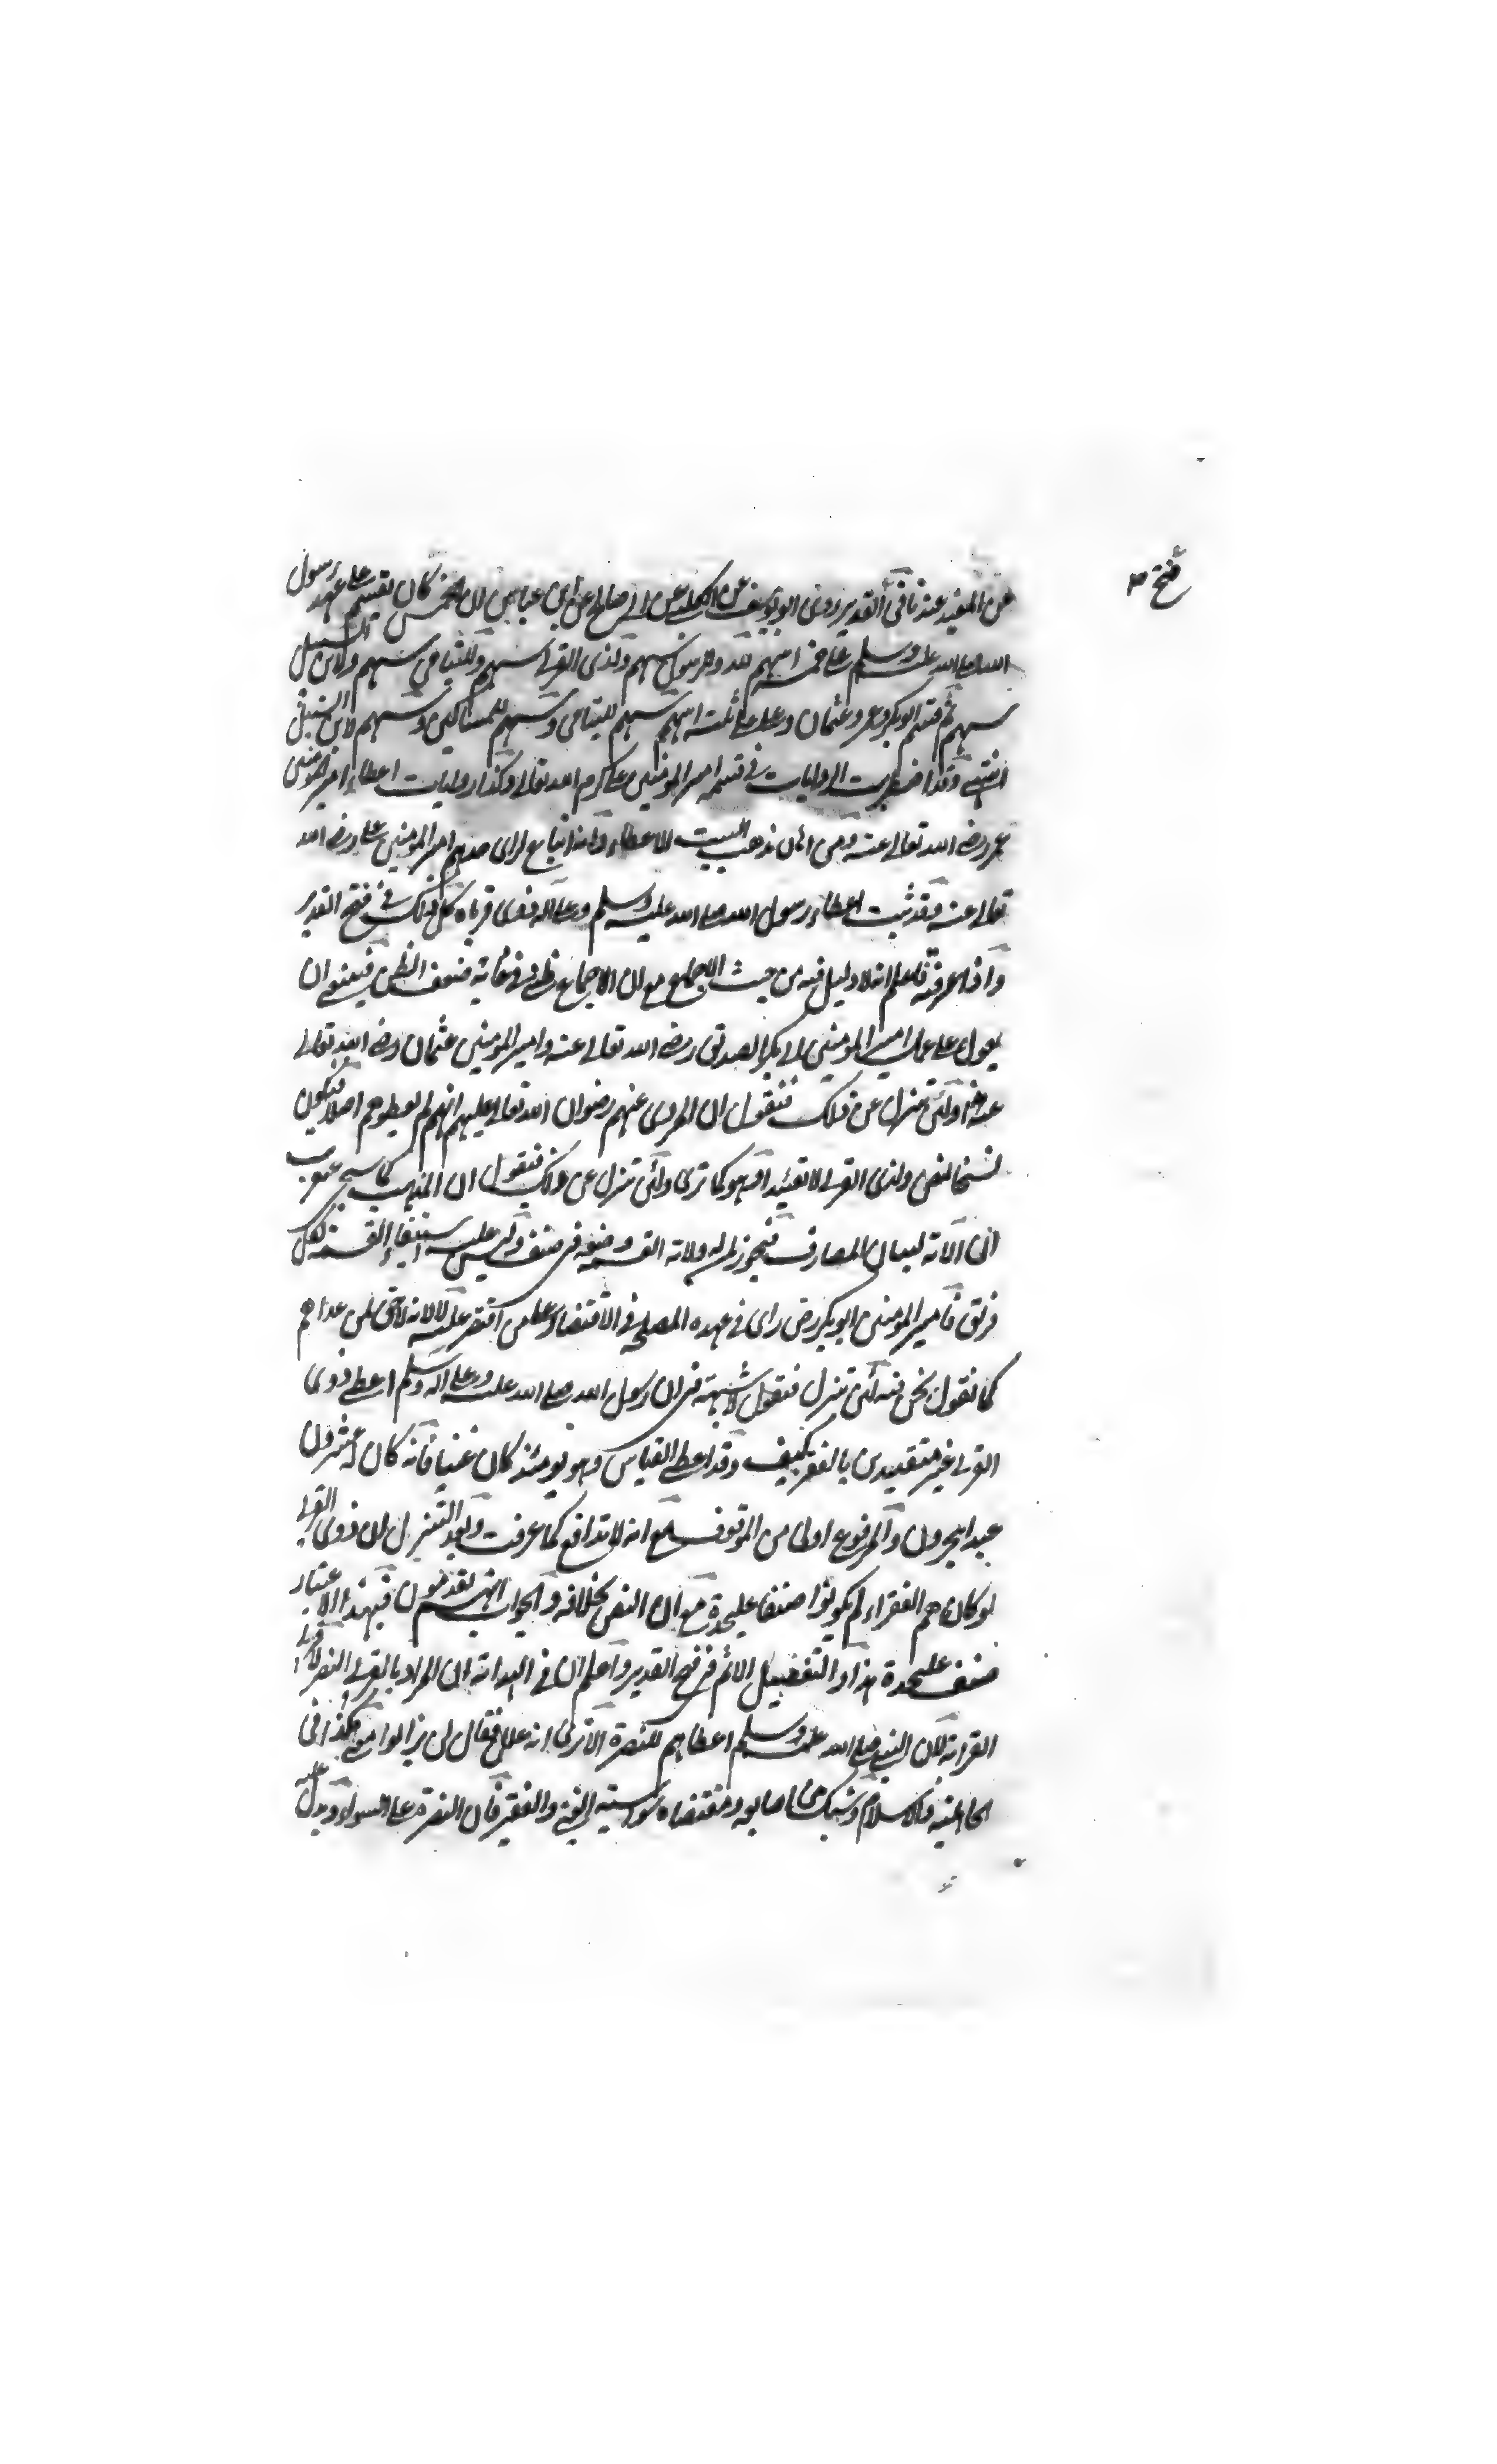 فتح ۳
عن المفيد عندنا في القدير روى ابو يوسف عن الكلبي عن ابي صالح عن ابن عباس ان الخمس كان يقسم على عهد رسول
الله صلى الله عليه وسلم على خمسة اسهم لله وللرسول سهم ولذى القربى سهم ولليتامى سهم ولابن السبيل
سهم ثم قسم ابو بكر وعمر وعثمان وعلى على ثلثة اسهم سهم لليتامى وسهم للمساكين وسهم لابن السبيل
انتهى وقد اضطربت الروايات في قسمة امير المؤمنين على كرم الله تعالى وكذا روايات اعطاء امير المؤمنين
عمر رضى الله تعالى عنه ومن ائمان مذهب البيت الاعطاء وانه اتباع لراى جدهم امير المؤمنين على رضى الله
تعالى عنه وقد ثبت اعطاء رسول الله صلى الله عليه وسلم وعلى اله ذوى قرباه كل ذلك في فتح القدير
واذا عرفت فاعلم انه لا دليل فيه من حيث الاجماع مع ان الاجماع ظنى وفي غاية ضعف الظن فينبغى ان
يعول على عمل امير المؤمنين ابى بكر الصديق رضى الله تعالى عنه وامير المؤمنين عثمان رضى الله تعالى
عنه ولئن تنزل عن ذلك فنقول ان المروى عنهم رضوان الله تعالى عليهم انهم لم يعطوهم اصلا فيكون
نسخا لنص ولذى القربى لا تقييدا وهو كما ترى ولئن تنزل عن ذلك فنقول ان المذهب كما سيجئ عن قريب
ان الاية لبيان المصارف فيجوز لمن له ولاية القسمة وضعه في صنف وليس عليه استيفاء القسمة لكل
فريق فامير المؤمنين ابو بكر رض راى في عهده المصلحة في الاقتصار على من اقتصر عليه لا لانه لا حق لمن عداهم
كما نقول نحن فيه لئن تنزل فنقول لا شبهة في ان رسول الله صلى الله عليه وعلى اله وسلم اعطى ذوى
القربى غير متقيدين بالفقر كيف وقد اعطى العباس وهو يومئذ كان غنيا فانه كان له عشرون
عبدا يتجرون والمرفوع اولى من الموقوف مع انه لا تدافع كما عرفت وبعد التنزل ان ذوى القربى
لو كان هم الفقراء لم يكونوا صنفا عليحدة مع ان النص بخلافه والجواب انهم يقدمون فبهذا الاعتبار
صنف عليحدة هذا والتفصيل الاتم في فتح القدير واعلم ان في الهداية ان المراد بالقربى النصرة لا قرب
القرابة لان النبي صلى الله عليه وسلم اعطاهم للنصرة الا ترى انه علل فقال لن يزالوا معى هكذا في
الجاهلية والاسلام وشبك بين اصابعه ومقتضاه سوائية الغنى والفقير فان النصرة على السواء ويدل عليه